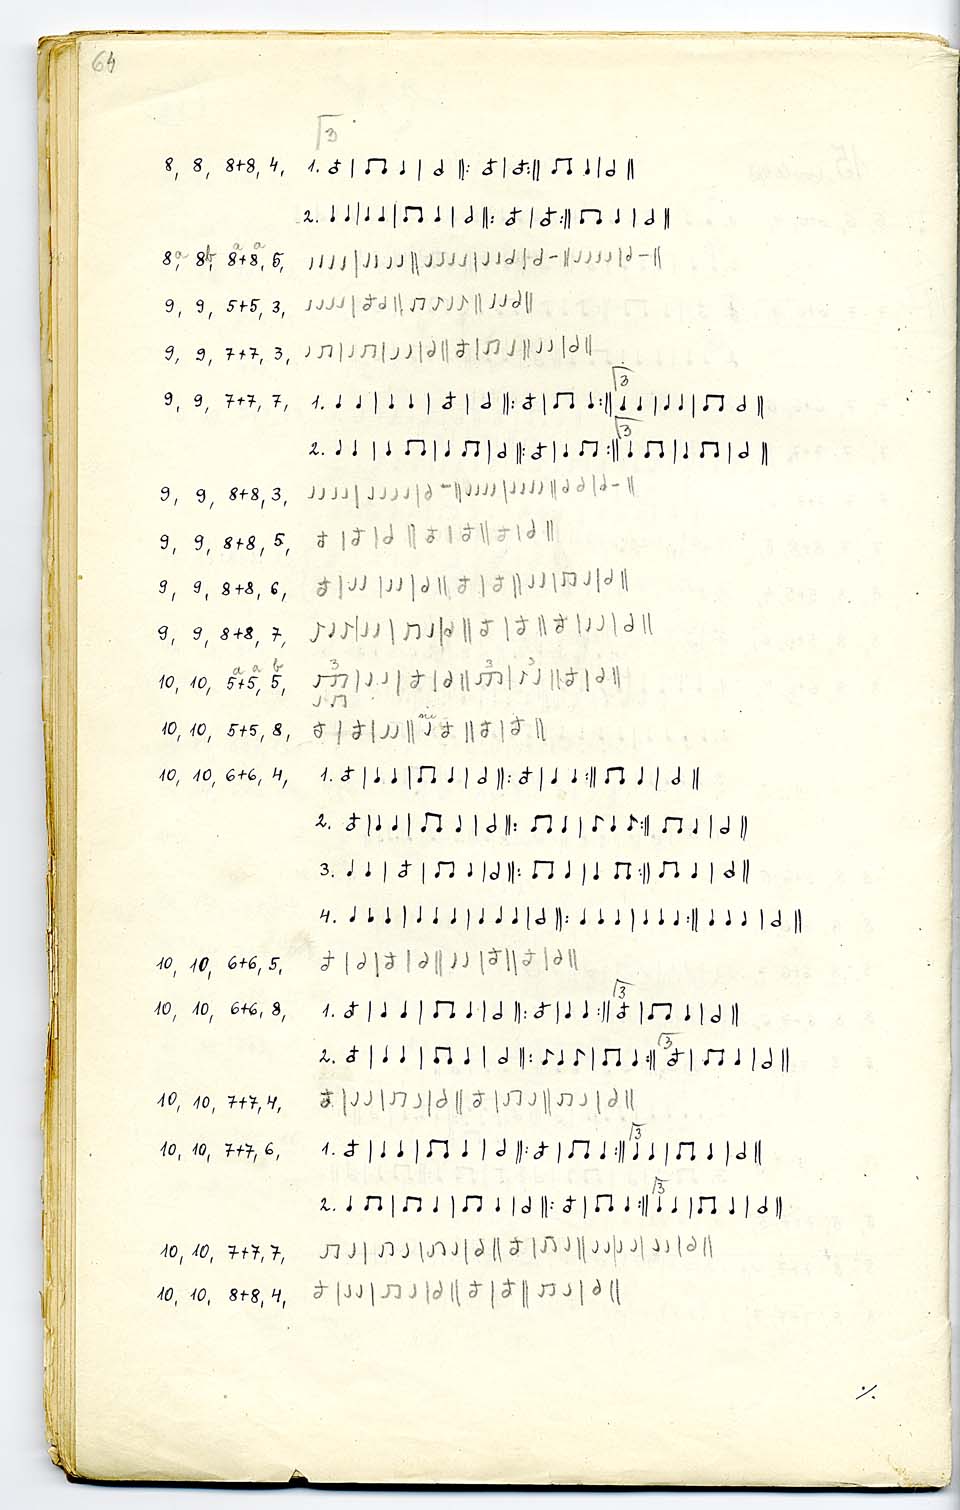 64
3
8, 8, 8+8, 4, 1.
2.
8a, 8b, 8+8, 5, a a
9, 9, 5+5, 3,
9, 9, 7+7, 3,
9, 9, 7+7, 7, 1. 3
2. 3
9, 9, 8+8, 3,
9, 9, 8+8, 5,
9, 9, 8+8, 6,
9, 9, 8+8, 7,
10, 10, 5+5, 5, a a b 3 3 3
10, 10, 5+5, 8,
10, 10, 6+6, 4, 1.
2.
3.
4.
10, 10, 6+6, 5,
10, 10, 6+6, 8, 1. 3
2. 3
10, 10, 7+7, 4,
10, 10, 7+7, 6, 1. 3
2. 3
10, 10, 7+7, 7,
10, 10, 8+8, 4,
./.